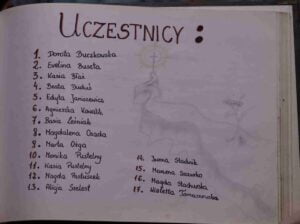 UCZESTNICY :
1. Dorota Buczkowska
2. Ewelina Buseta
3. Kasia Błaś
4. Beata Duduś
5. Edyta Janiszewicz
6. Agnieszka Kowalik
7. Basia Leśniak
8. Magdalena Osiecka
9. Marta Ołga
10. Monika Pustelny
11. Kasia Pustelny
12. Magda Pastuszek
13. Alicja Szelest
14. Iwona Stadnik
15. Marzena
16. Magda Stachurska
17. Wioletta